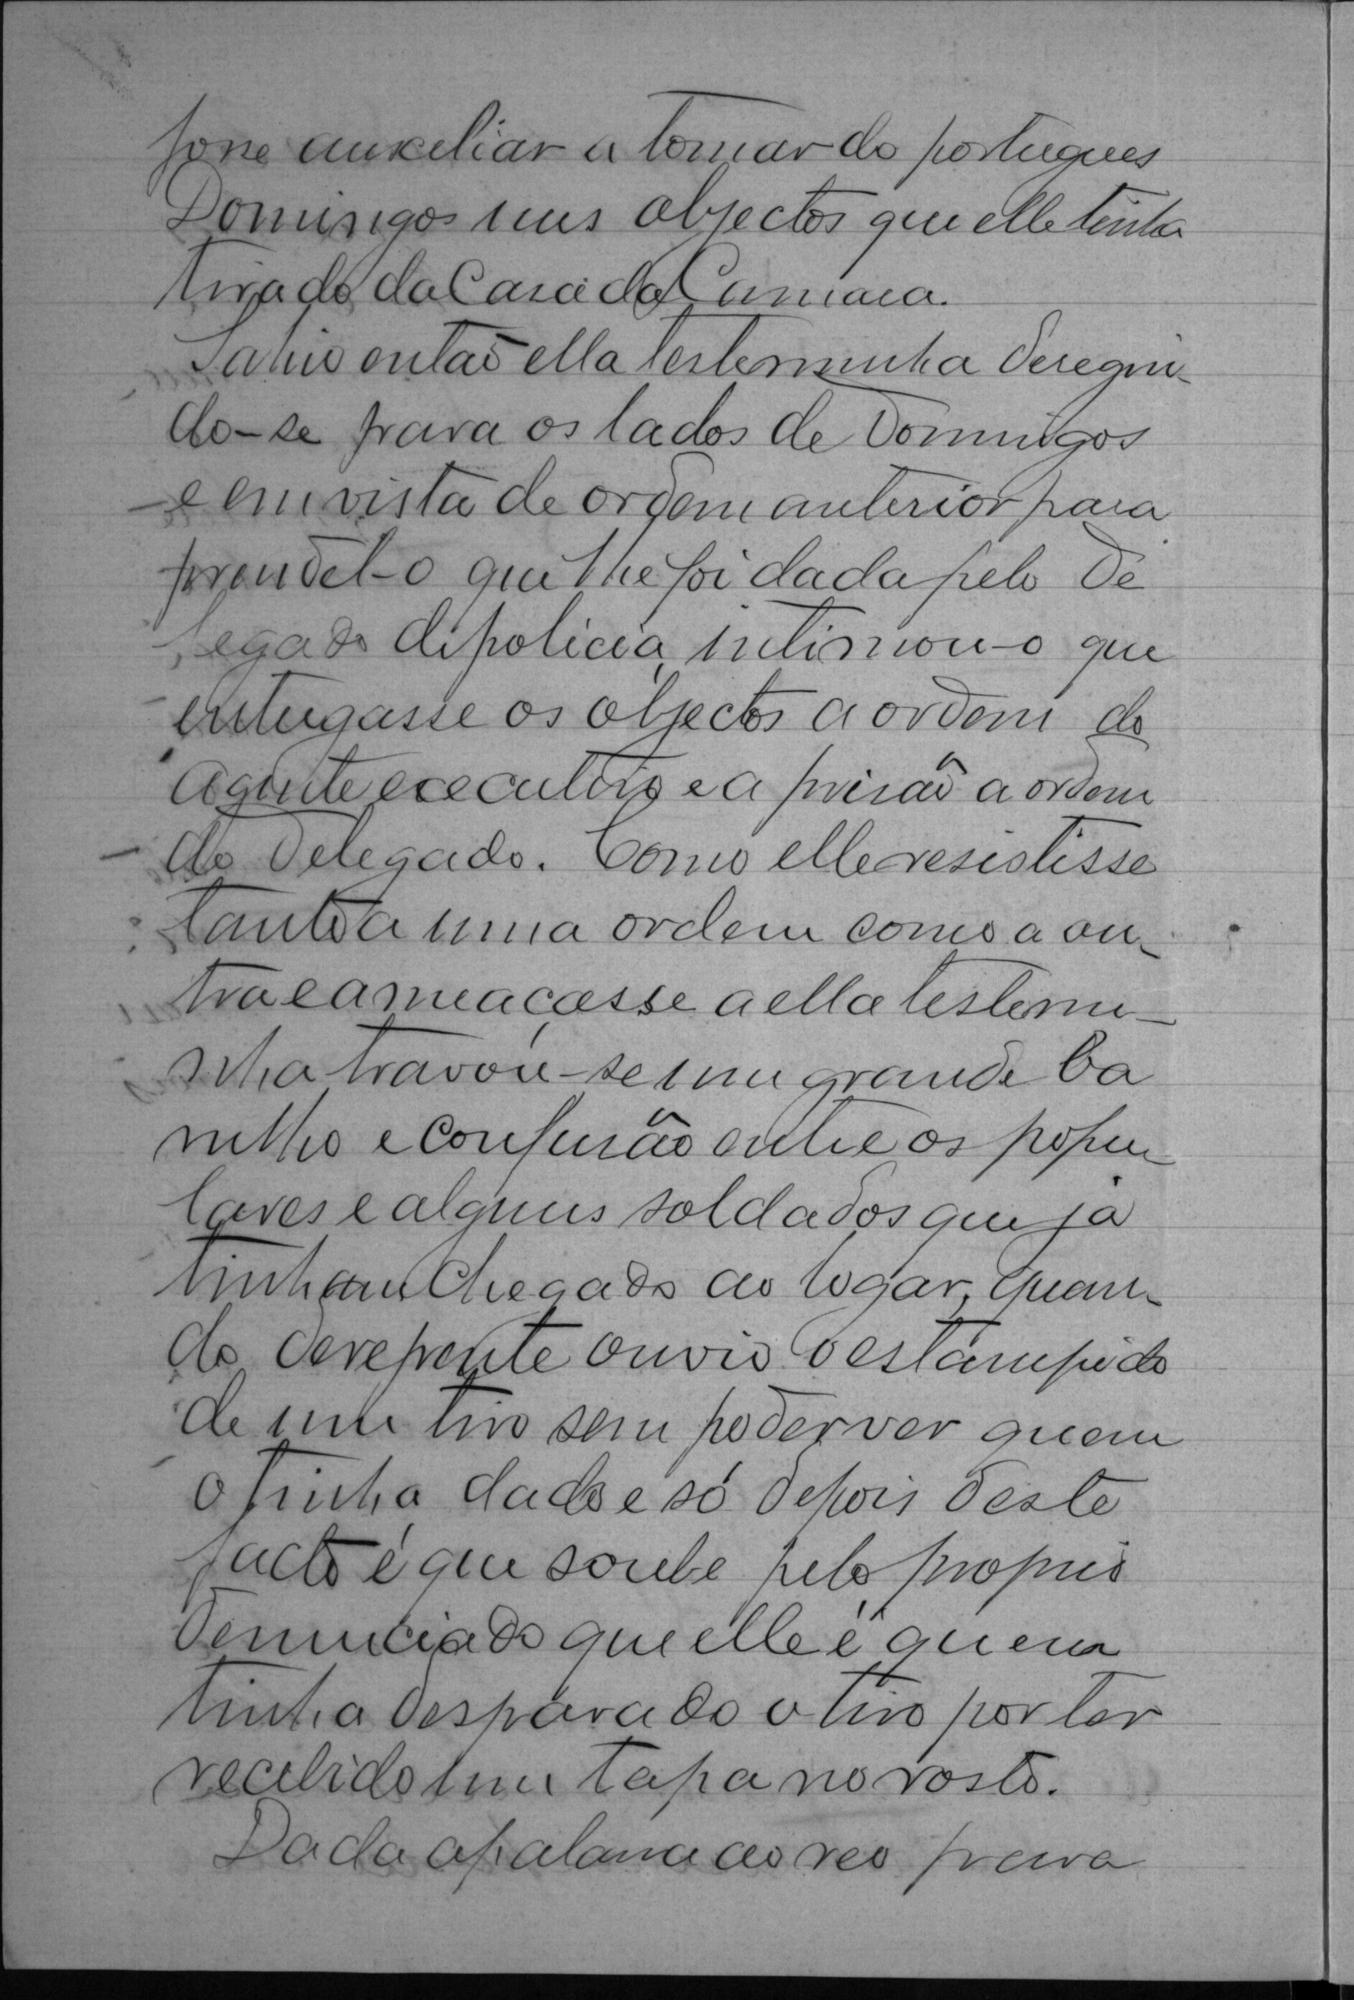 fosse auxeliar a tomar do portugues
Domingos uns objectos que elle tinha
tirado da Casa da Camara.
Sahio então ella testemunha deregin-
do-se para os lados de Domingos
e em vista de ordem anterior para
prendel-o que lhe foi dada pelo De
legado de policia, intimou-o que
entregasse os objectos a ordem do
Agente executivo e a prisão a ordem
do Delegado. Como elle resistisse
tanto a uma ordem como a ou-
tra e ameaçasse a ella testemu-
nha travou-se um grande ba
rulho e confusão entre os popu-
lares e alguns soldados que já
tinham chegado ao logar, quan-
do derepente ouvio o estampido
de um tiro sem poder ver quem
o tinha dado e só depois deste
facto é que soube pelo proprio
denunciado que elle é quem
tinha desparado o tiro por ter
recebido um tapa no rosto.
Dada a palavra ao reo para